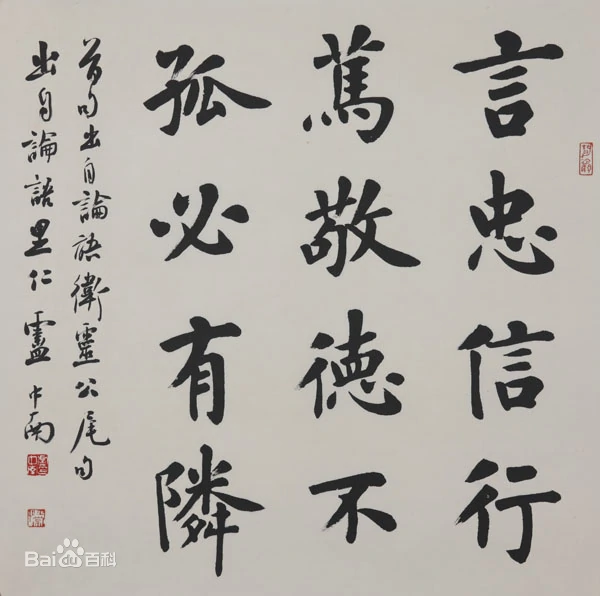 言忠信行
篤敬德不
孤必有隣
首句出自論語衛靈公尾句
出自論語里仁盧中南
Bai百科